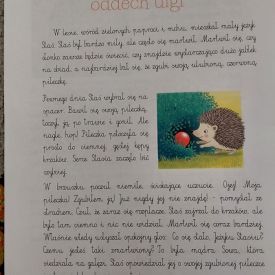 oddech ulgi
W lesie, wśród zielonych paproci i mchu, mieszkał mały jeżyk
Staś. Staś był bardzo miły, ale często się martwił. Martwił się, czy
słonko zawsze będzie świecić, czy znajdzie wystarczająco dużo jabłek
na obiad, a najbardziej bał się, że zgubi swoją ulubioną, czerwoną
piłeczkę.
Pewnego dnia Staś wybrał się na
spacer. Bawił się swoją piłeczką,
tocząc ją po trawie i górce. Ale
nagle, hop! Piłeczka potoczyła się
prosto do ciemnej, gęstej kępy
krzaków. Serce Stasia zaczęło bić
szybciej.
W brzuszku poczuł niemiłe, ściskające uczucie. Ojej! Moja
piłeczka! Zgubiłem ją! Już nigdy jej nie znajdę! - pomyślał ze
strachem. Czuł, że zaraz się rozpłacze. Staś zajrzał do krzaków, ale
było tam ciemno i nic nie widział. Martwił się coraz bardziej.
Właśnie wtedy usłyszał spokojny głos: Co się stało, Jeżyku Stasiu?
Czemu jesteś taki zmartwiony? To była mądra Sowa, która
siedziała na gałęzi. Staś opowiedział jej o swojej zgubionej piłeczce